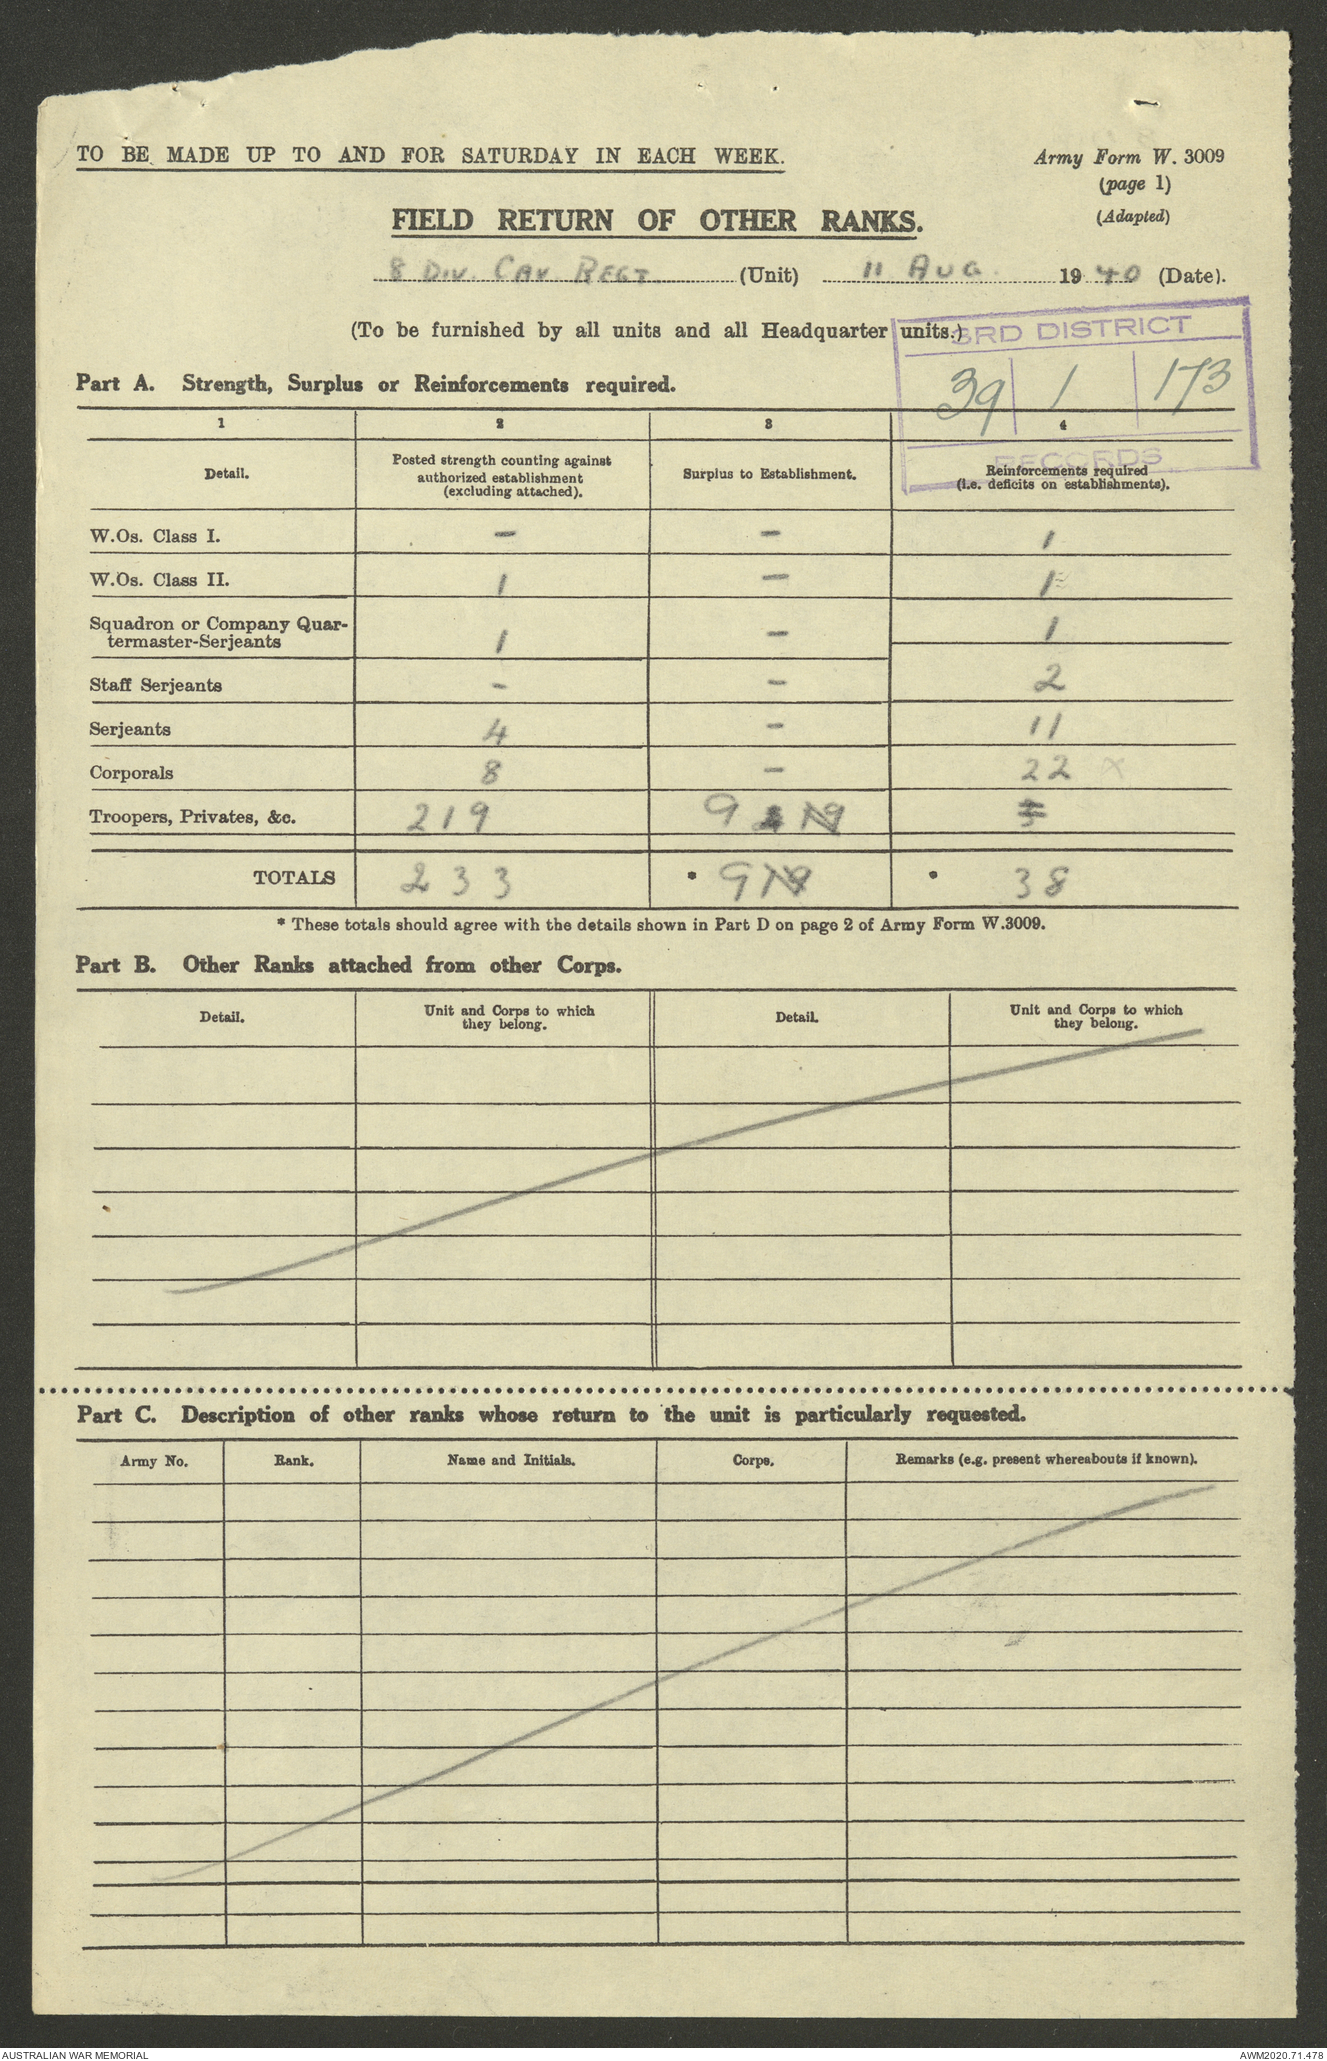 TO BE MADE UP TO AND FOR SATURDAY IN EACH WEEK.
Army Form W. 3009
(page 1)
(Adapted)
FIELD RETURN OF OTHER RANKS.
8 DIV. CAV. REGT. (Unit) 11 AUG. 1940 (Date).
(To be furnished by all units and all Headquarter units.)
3RD DISTRICT
39 | 1 | 173
RECORDS
Part A. Strength, Surplus or Reinforcements required.
1 2 3 4
Detail. Posted strength counting against authorized establishment (excluding attached). Surplus to Establishment. Reinforcements required (i.e. deficits on establishments).
W.Os. Class I. – – 1
W.Os. Class II. 1 – 1
Squadron or Company Quar-
termaster-Serjeants 1 – 1
Staff Serjeants - – 2
Serjeants 4 - 11
Corporals 8 – 22 x
Troopers, Privates, &c. 219 9
TOTALS 233 * 9 * 38
* These totals should agree with the details shown in Part D on page 2 of Army Form W.3009.
Part B. Other Ranks attached from other Corps.
Detail. Unit and Corps to which they belong. Detail. Unit and Corps to which they belong.
Part C. Description of other ranks whose return to the unit is particularly requested.
Army No. Rank. Name and Initials. Corps. Remarks (e.g. present whereabouts if known).
AUSTRALIAN WAR MEMORIAL
AWM2020.71.478